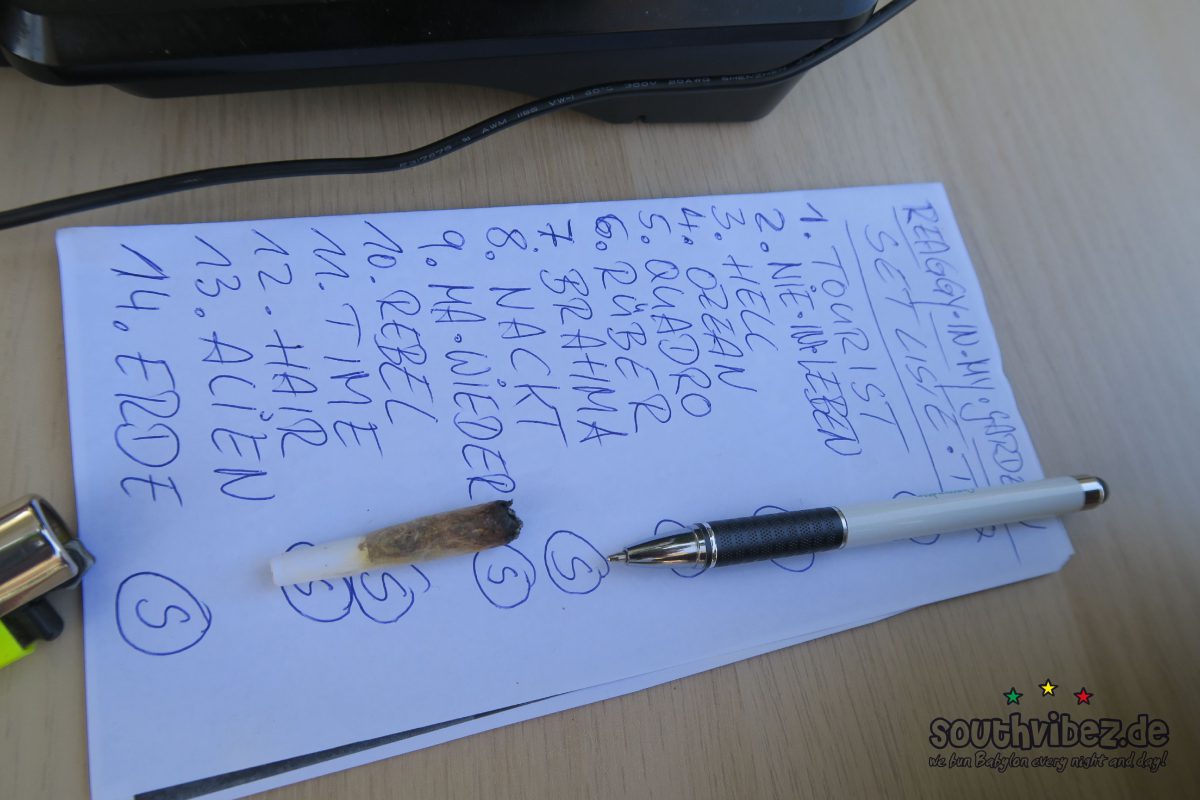 REAGGY·IN·MY·GARDEN
SET LISTE·
1. TOURIST
2. NIE·IM·LEBEN
3. HELL
4. OZEAN
5. QUADRO
6. RÜBER
7. BRAHMA
8. NACKT S
9. MA·WIEDER S
10. REBEL
11. TIME S
12. HAIR S
13. ALIEN
14. ERDE S
AWM VW-1 80°C 300V 20AWG
southvibez.de
we bun Babylon every night and day!